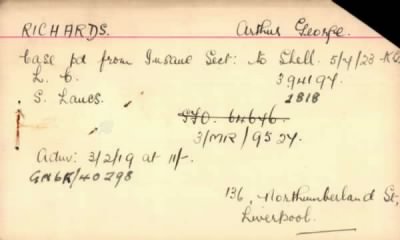 RICHARDS. Arthur George.
Case pd from Insane Sect: to Shell. 5/4/23
L. C. 39497.
S. Lancs. 2818
S/O. 64646.
3/MR/9527.
Activ: 3/2/19 at 11/-.
GN6K/40298
136, Northumberland St,
Liverpool.